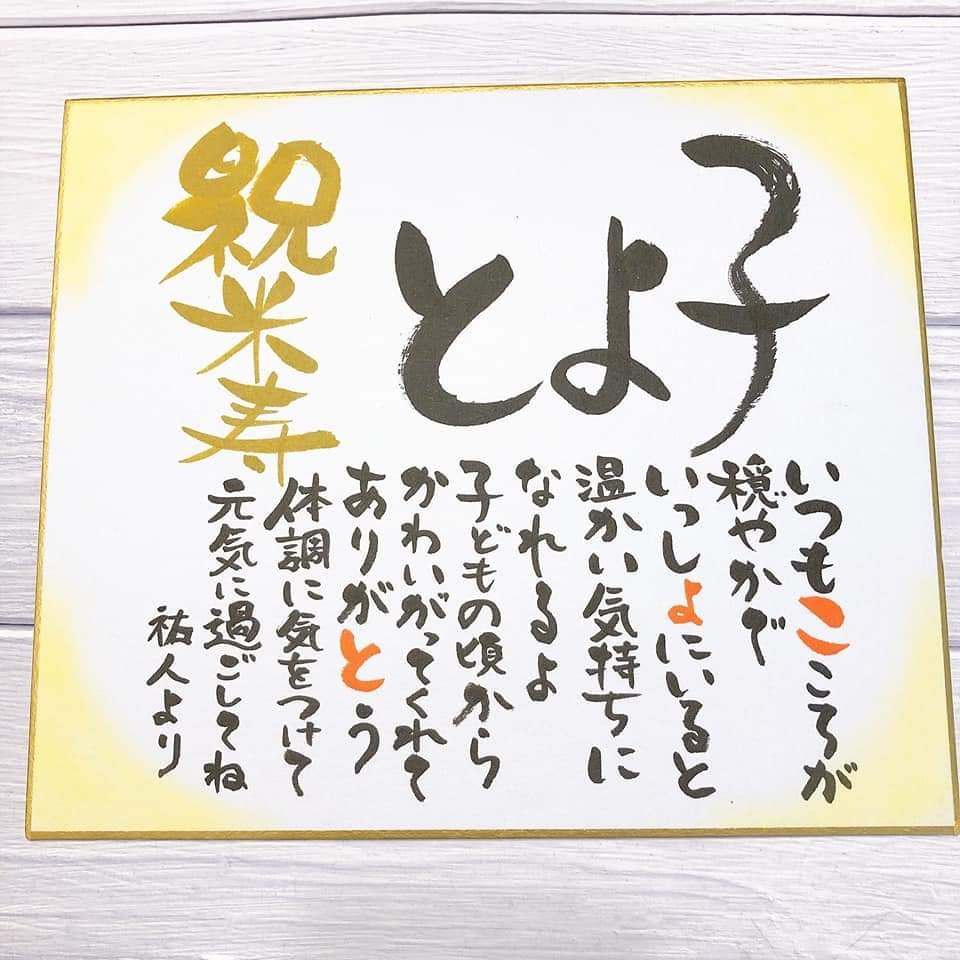 とよ子
いつもこころが
穏やかで
いっしょにいると
温かい気持ちに
なれるよ
子どもの頃から
かわいがってくれて
ありがとう
体調に気をつけて
元気に過ごしてね
祐人より
祝米寿